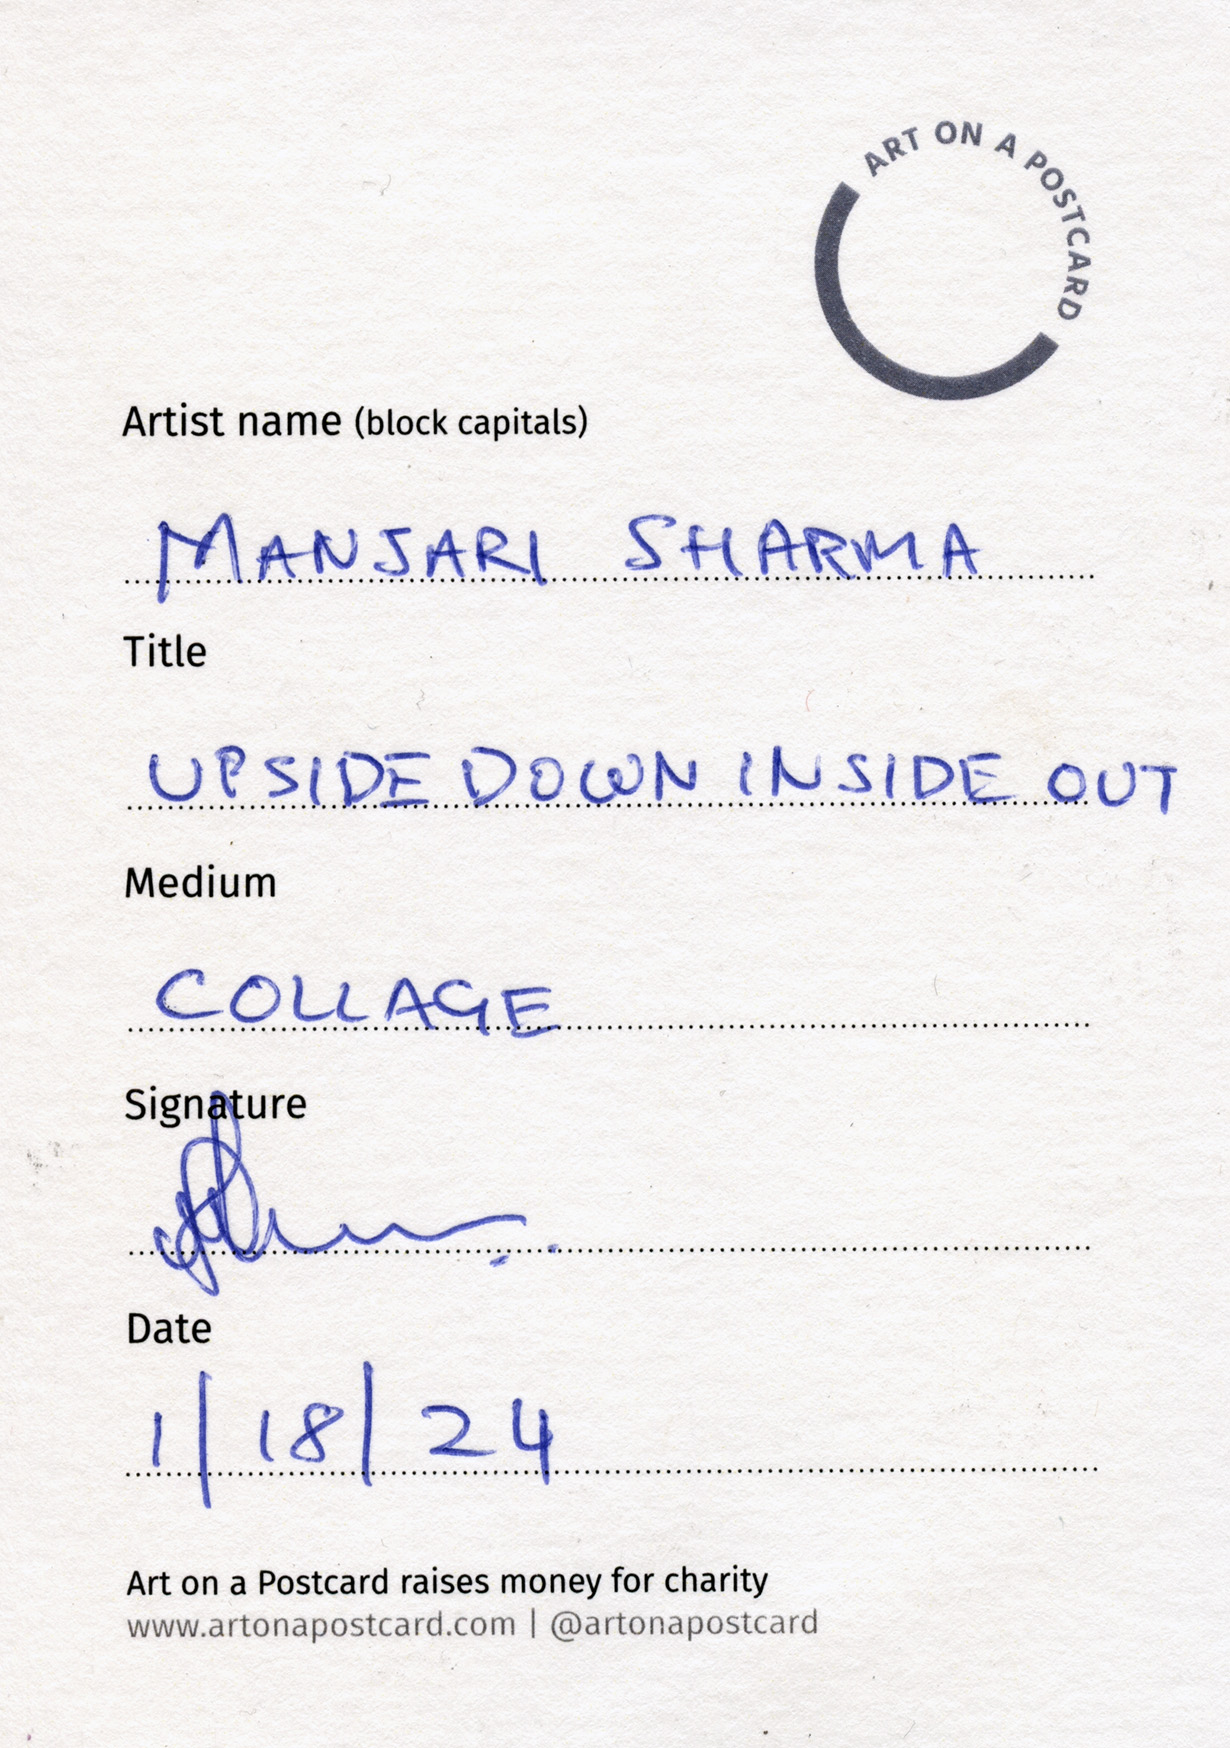 ART ON A POSTCARD
Artist name (block capitals)
MANJARI SHARMA
Title
UPSIDE DOWN INSIDE OUT
Medium
COLLAGE
Signature
Date
1/18/24
Art on a Postcard raises money for charity
www.artonapostcard.com | @artonapostcard